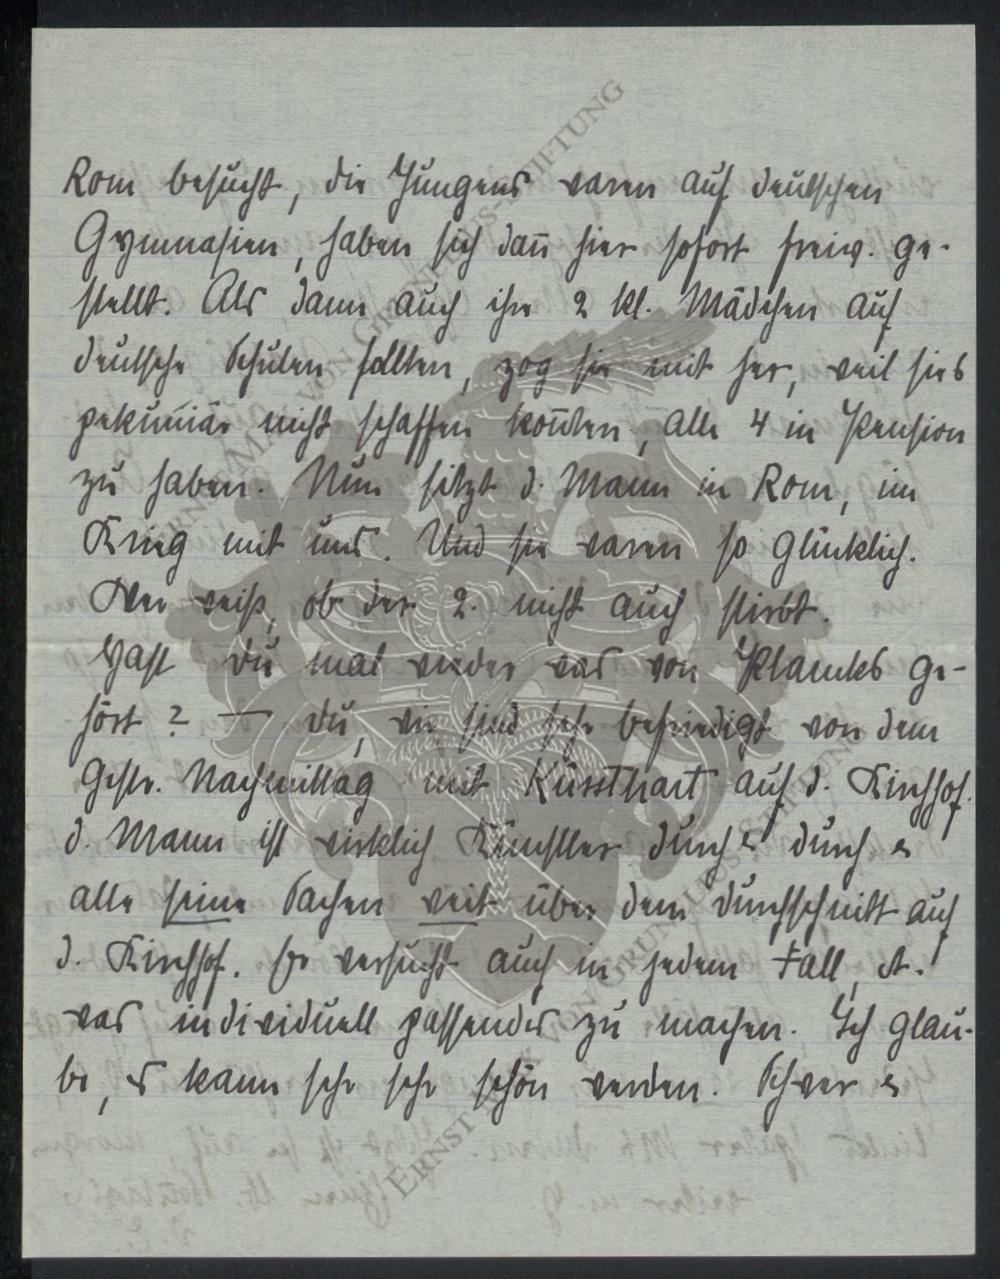 Rom besucht, die Jungens waren auf deutschen
Gymnasien, haben sich dan̄ hier sofort freiw. ge-
stellt. Als dann auch ihre 2 kl. Mädchen auf
deutsche Schulen sollten, zog sie mit her, weil sies
pekuniär nicht schaffen kon̄ten, alle 4 in Pension
zu haben. Nun sitzt d. Mann in Rom, im
Krieg mit uns. Und sie waren so glücklich.
Wer weiß, ob der 2. nicht auch stirbt.
Hast Du mal wieder was von Plamkes ge-
hört? — Du, wir sind sehr befriedigt von dem
gestr. Nachmittag mit Kussthart auf d. Kirchhof.
d. Mann ist wirklich Künstler durch & durch &
alle seine Sachen weit über dem Durchschnitt auf
d. Kirchhof. Er versucht auch in jedem Fall,
was individuell passendes zu machen. Ich glau-
be, es kann sehr sehr schön werden. Schwer &
ERNST-MAX VON GRUNELIUS-STIFTUNG
ERNST MAX VON GRUNELIUS-STIFTUNG